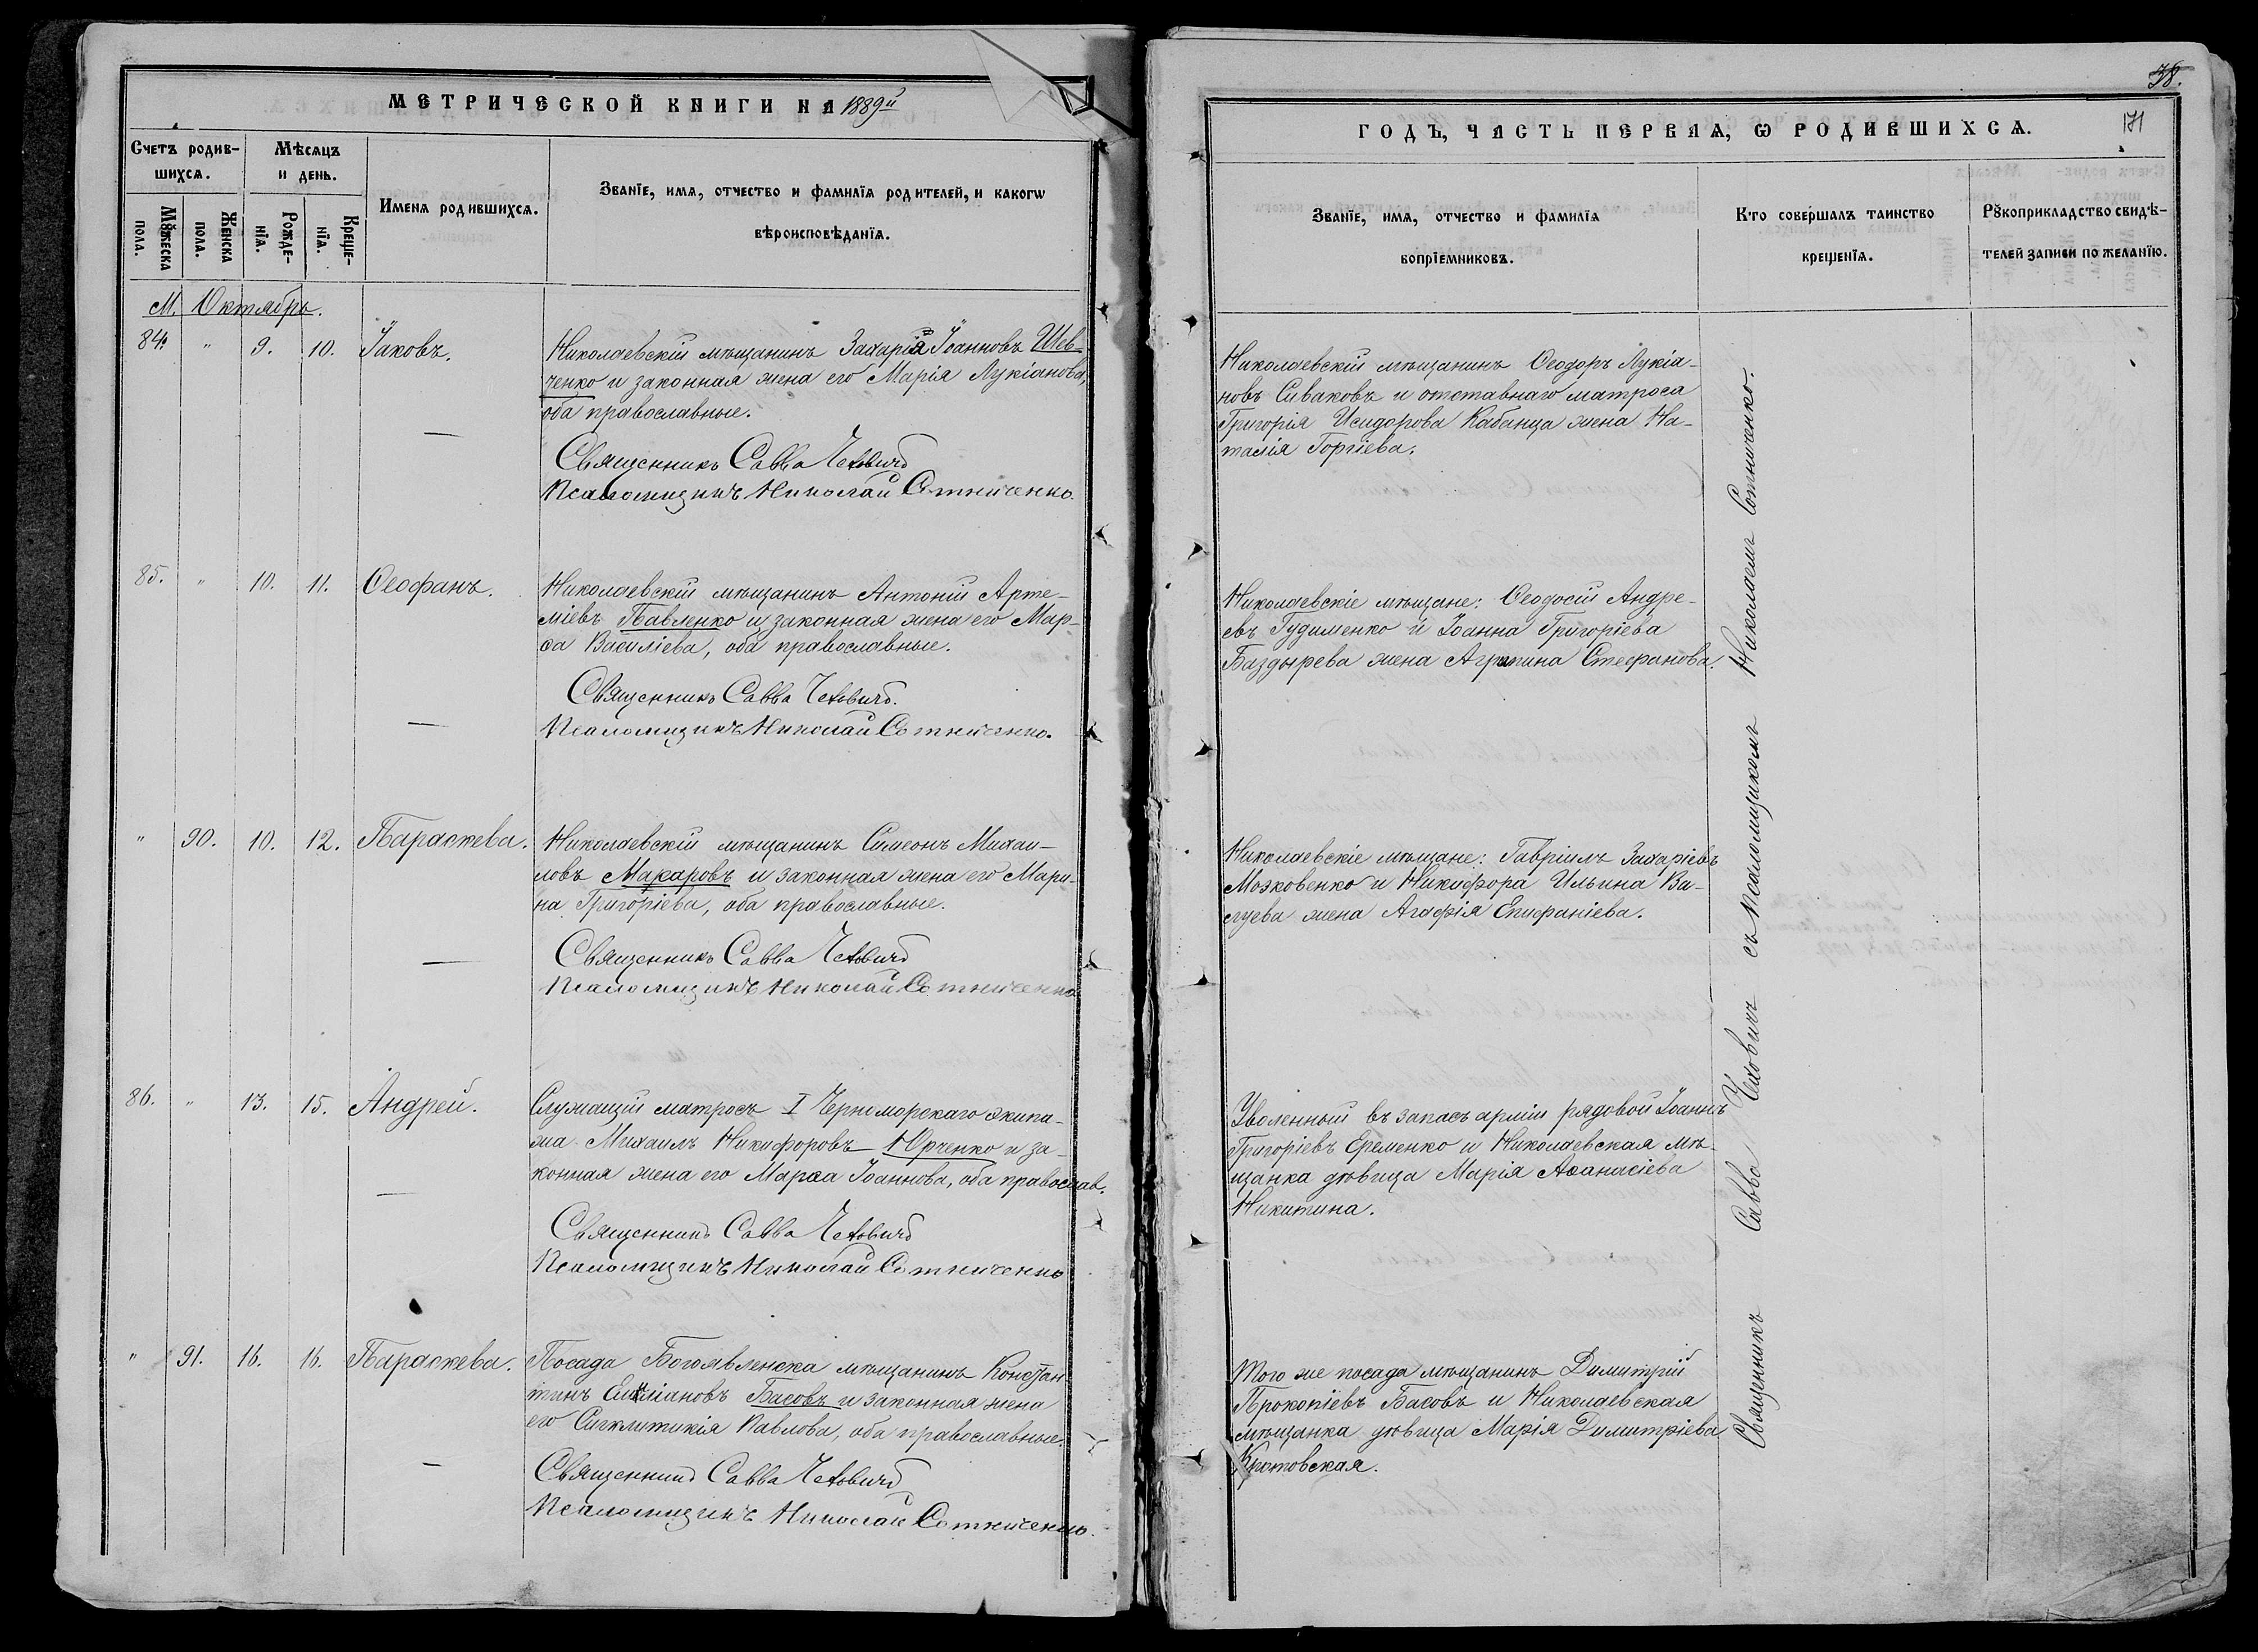 МЕТРИЧЕСКОЙ КНИГИ НА 1889й
Счетъ родив-
шихся.
Мѣсяцъ
и день.
Имена родившихся.
Званїе, имя, отчество и фамилїя родителей, и какогѡ
вѣроисповѣданїя.
Мꙋжеска
пола.
Женска
пола.
Рожде-
нїя.
Креще-
нїя.
М. Октябрь.
84. " 9. 10. Іаковъ.
Николаевскій мѣщанинъ Захарія Іоанновъ Шев-
ченко и законная жена его Марія Лукіанова,
оба православные.
Священникъ Савва Чехович
Псаломщикъ Николай Сотниченко.
85. " 10. 11. Ѳеофанъ.
Николаевскій мѣщанинъ Антоній Арте-
міевъ Павленко и законная жена его Мар-
ѳа Василіева, оба православные.
Священникъ Савва Чехович.
Псаломщикъ Николай Сотниченко.
" 90. 10. 12. Параскева.
Николаевскій мѣщанинъ Симеонъ Михаи-
ловъ Макаровъ и законная жена его Мари-
на Григоріева, оба православные.
Священникъ Савва Чехович
Псаломщикъ Николай Сотниченко
86. " 13. 15. Андрей.
Служащій матросъ I Черноморскаго экипа-
жа Михаилъ Никифоровъ Юрченко и за-
конная жена его Марѳа Іоаннова, оба православ.
Священникъ Савва Чехович
Псаломщикъ Николай Сотниченко
" 91. 16. 16. Параскева.
Посада Богоявленска мѣщанинъ Констан-
тинъ Емиліановъ Басовъ и законная жена
его Сигклитикія Павлова, оба православные.
Священникъ Савва Чехович
Псаломщикъ Николай Сотниченко.
38.
171
ГОДЪ, ЧАСТЬ ПЕРВАЯ, Ѡ РОДИВШИХСЯ.
Званїе, имя, отчество и фамилїя
воспрїемниковъ.
Кто совершалъ таинство
крещенїя.
Рꙋкоприкладство свидѣ-
телей записи по желанїю.
Николаевскій мѣщанинъ Ѳеодоръ Лукіа-
новъ Сиваковъ и отставнаго матроса
Григорія Исидорова Кабанца жена На-
талія Горгіева.
Николаевскіе мѣщане: Ѳеодосій Андре-
евъ Гудименко и Іоанна Григоріева
Баздырева жена Агрипина Стефанова.
Николаевскіе мѣщане: Гавріилъ Захаріевъ
Мозковенко и Никифора Ильина Ва-
луева жена Агафія Епифаніева.
Уволенный въ запасъ арміи рядовой Іоаннъ
Григоріевъ Еременко и Николаевская мѣ-
щанка дѣвица Марія Аѳанасіева
Никитина.
Того же посада мѣщанинъ Димитрій
Прокопіевъ Басовъ и Николаевская
мѣщанка дѣвица Марія Димитріева
Кротовская.
Священникъ Савва Чеховичъ съ псаломщикомъ Николаемъ Сотниченко.